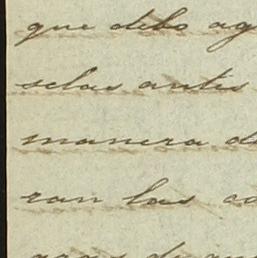 que debo ag
selas antes
manera d
ran las co